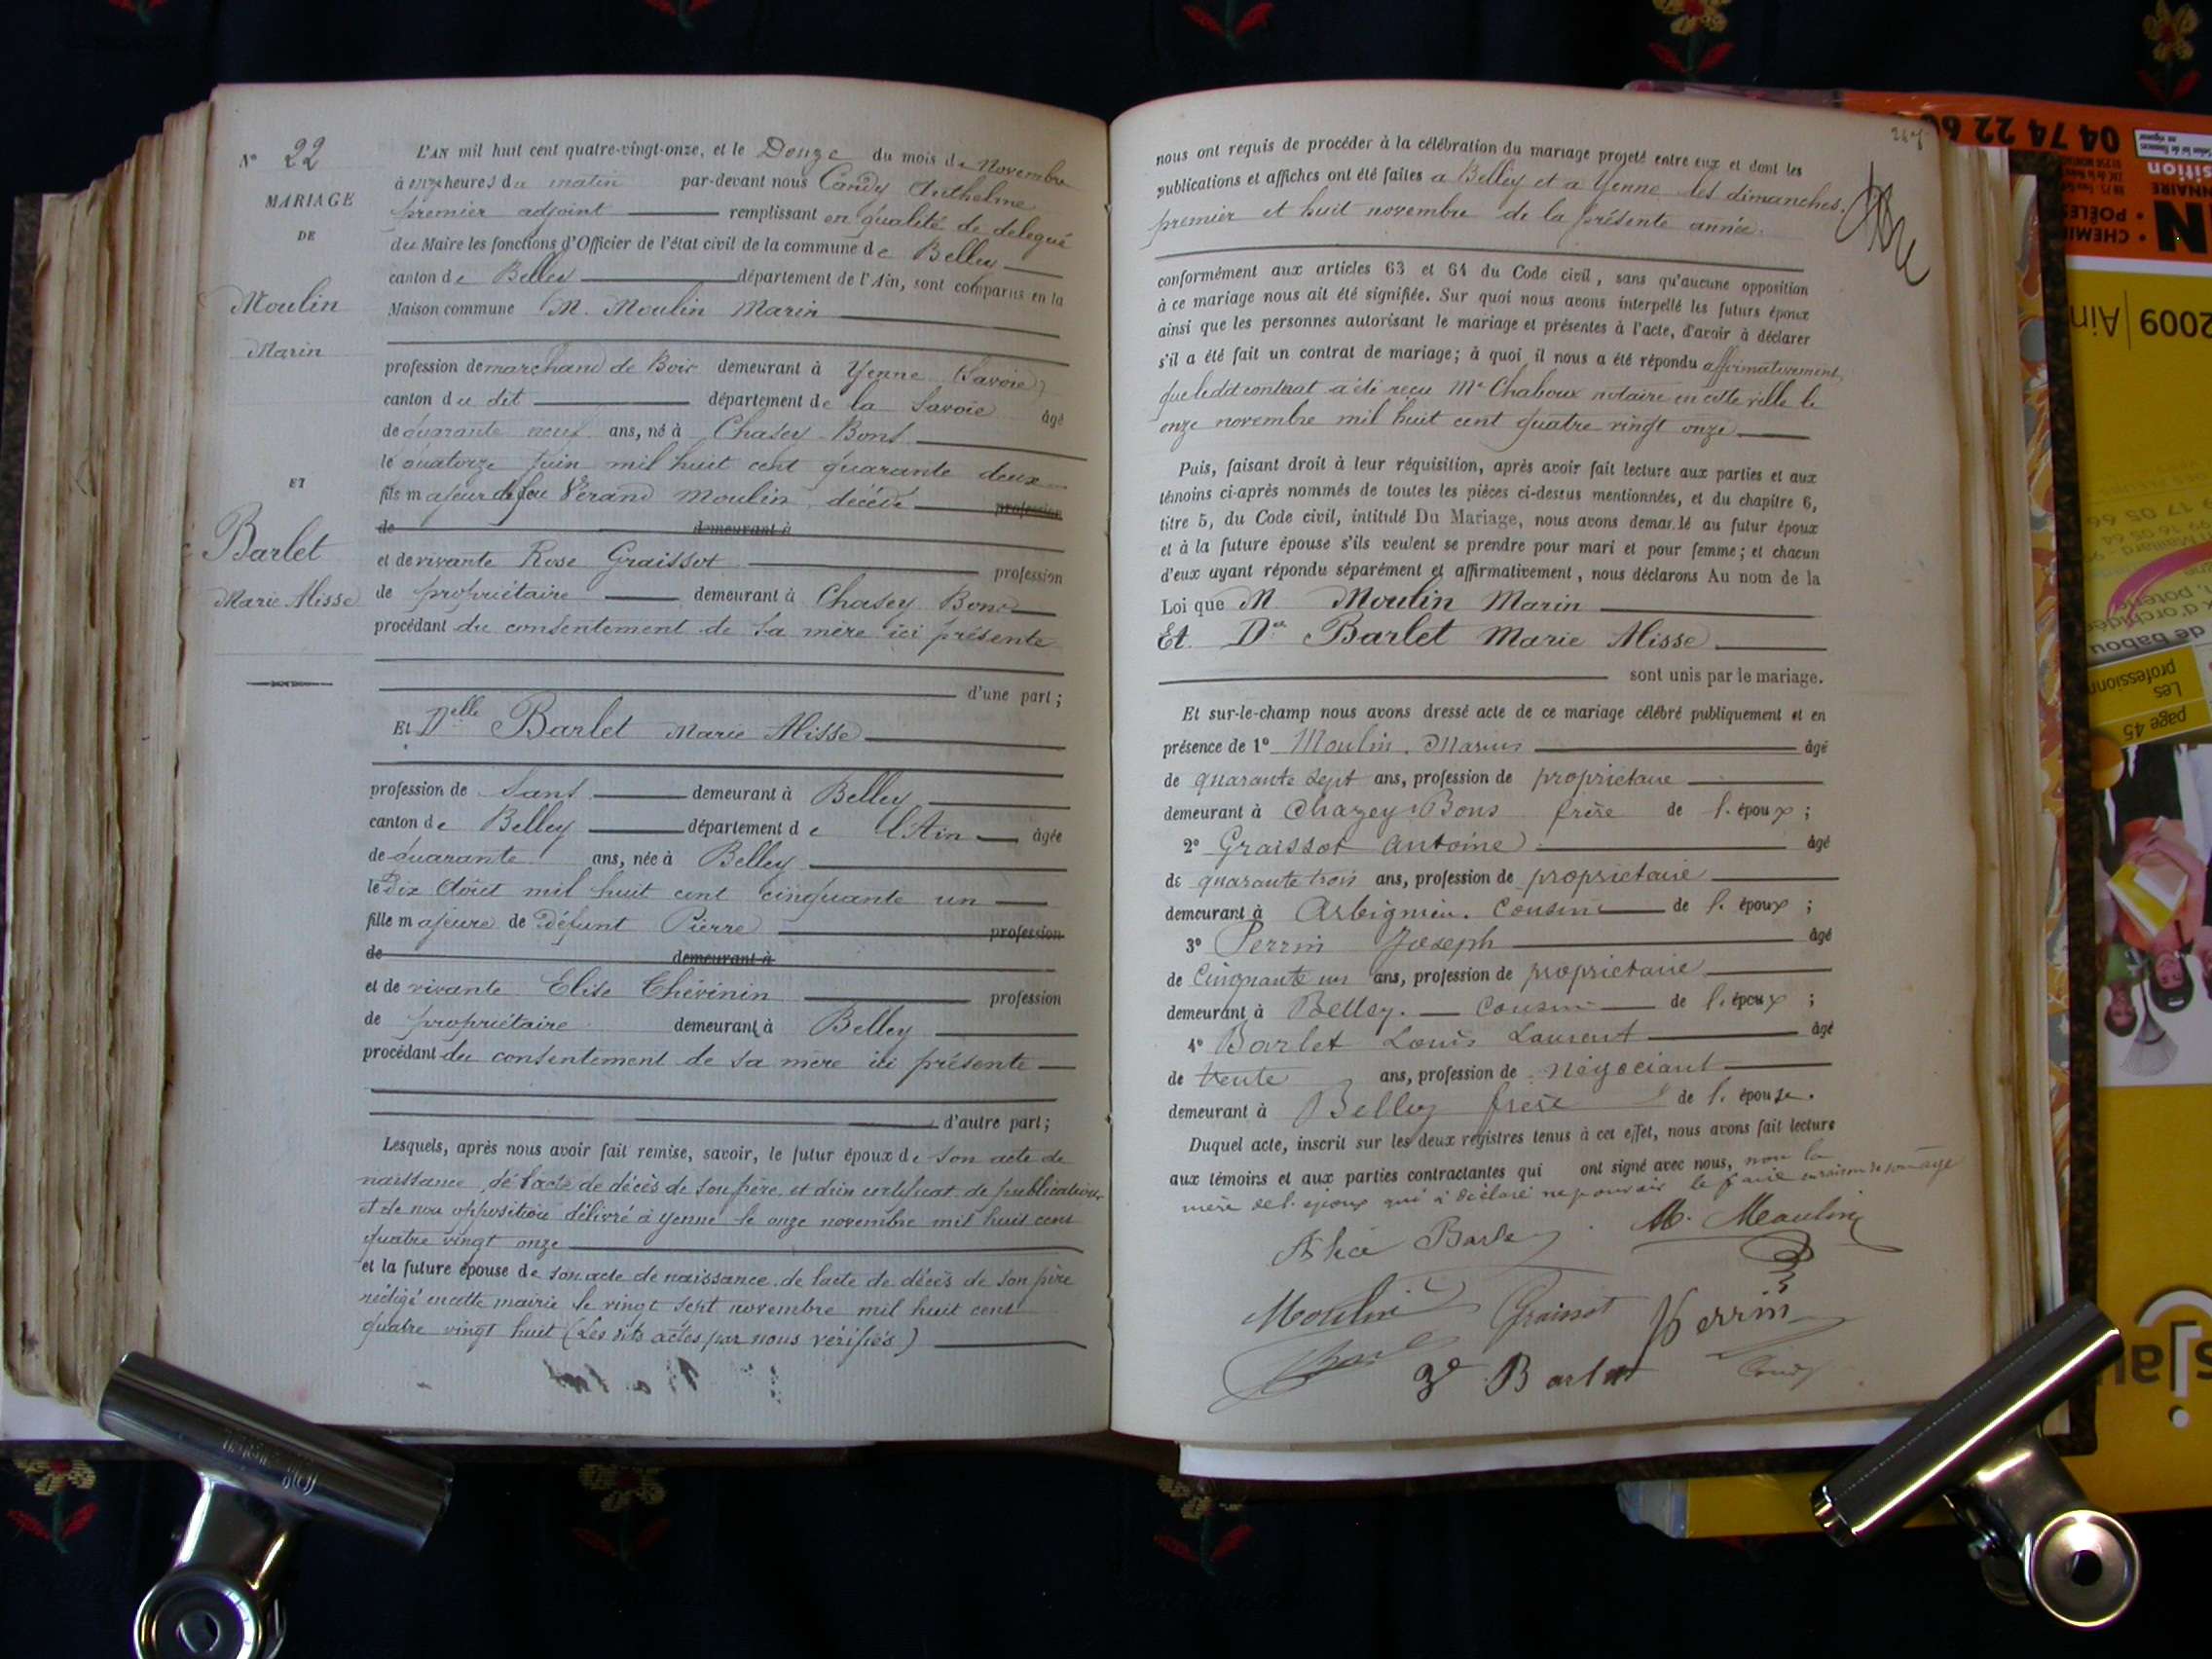 N° 22
MARIAGE
DE
Moulin
Marin
ET
Barlet
Marie Alisse
L'AN mil huit cent quatre-vingt-onze, et le Douze du mois de Novembre
à onze heures du matin par-devant nous Candy Anthelme
premier adjoint remplissant en qualité de délégué
du Maire les fonctions d'Officier de l'état civil de la commune de Belley
canton de Belley département de l'Ain, sont comparus en la
Maison commune M. Moulin Marin
profession de marchand de Bois demeurant à Yenne (Savoie)
canton du dit département de la Savoie âgé
de quarante neuf ans, né à Chasey-Bons
le quatorze juin mil huit cent quarante deux
fils majeur de feu Vérand Moulin, décédé profession
de demeurant à
et de vivante Rose Graissot profession
de propriétaire demeurant à Chasey Bons
procédant du consentement de sa mère ici présente
d'une part ;
Et Delle Barlet Marie Alisse
profession de Sans demeurant à Belley
canton de Belley département de l'Ain âgée
de quarante ans, née à Belley
le Dix Aôut mil huit cent cinquante un
fille majeure de Défunt Pierre profession
de demeurant à
et de vivante Elise Chévinin profession
de propriétaire demeurant à Belley
procédant du consentement de sa mère ici présente
d'autre part ;
Lesquels, après nous avoir fait remise, savoir, le futur époux de son acte de
naissance, de l'acte de décès de son père et d'un certificat de publications
et de non opposition délivré à Yenne le onze novembre mil huit cent
quatre vingt onze
et la future épouse de son acte de naissance, de l'acte de décès de son père
rédigé en cette mairie le vingt sept novembre mil huit cent
quatre vingt huit (Les dits actes par nous vérifiés)
nous ont requis de procéder à la célébration du mariage projeté entre eux et dont les
publications et affiches ont été faites a Belley et a Yenne les dimanches
premier et huit novembre de la présente année.
conformément aux articles 63 et 64 du Code civil, sans qu'aucune opposition
à ce mariage nous ait été signifiée. Sur quoi nous avons interpellé les futurs époux
ainsi que les personnes autorisant le mariage et présentes à l'acte, d'avoir à déclarer
s'il a été fait un contrat de mariage ; à quoi il nous a été répondu affirmativement,
que ledit contrat a été reçu Me Chaboux notaire en cette ville le
onze novembre mil huit cent quatre vingt onze
Puis, faisant droit à leur réquisition, après avoir fait lecture aux parties et aux
témoins ci-après nommés de toutes les pièces ci-dessus mentionnées, et du chapitre 6,
titre 5, du Code civil, intitulé Du Mariage, nous avons demandé au futur époux
et à la future épouse s'ils veulent se prendre pour mari et pour femme ; et chacun
d'eux ayant répondu séparément et affirmativement, nous déclarons Au nom de la
Loi que M Moulin Marin
Et Delle Barlet Marie Alisse
sont unis par le mariage.
Et sur-le-champ nous avons dressé acte de ce mariage célébré publiquement et en
présence de 1° Moulin Marius âgé
de quarante sept ans, profession de propriétaire
demeurant à Chazey-Bons frère de l'époux ;
2° Graissot Antoine âgé
de quarante trois ans, profession de propriétaire
demeurant à Arbignieu. Cousin de l'époux ;
3° Perrin Joseph âgé
de Cinquante un ans, profession de propriétaire
demeurant à Belley. Cousin de l'époux ;
4° Barlet Louis Laurent âgé
de trente ans, profession de négociant
demeurant à Belley frère de l'épouse.
Duquel acte, inscrit sur les deux registres tenus à cet effet, nous avons fait lecture
aux témoins et aux parties contractantes qui ont signé avec nous, non la
mère de l'époux qui a déclaré ne pouvoir le faire en raison de son âge
M. Moulin
Moulin Graissot Perrin
Barlet
Candy
04 74 22 60
2009
Ain
CHEMIN
POÊLES
Les
professionn
page 45